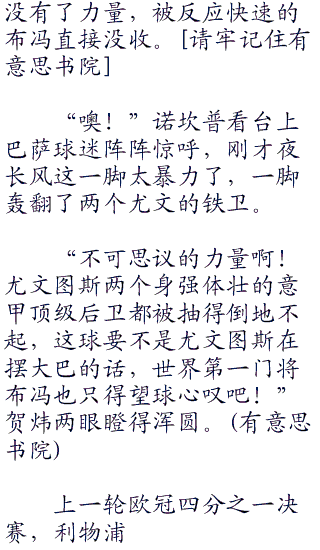 没有了力量，被反应快速的
布冯直接没收。[请牢记住有
意思书院]
“噢！”诺坎普看台上
巴萨球迷阵阵惊呼，刚才夜
长风这一脚太暴力了，一脚
轰翻了两个尤文的铁卫。
“不可思议的力量啊！
尤文图斯两个身强体壮的意
甲顶级后卫都被抽得倒地不
起，这球要不是尤文图斯在
摆大巴的话，世界第一门将
布冯也只得望球心叹吧！”
贺炜两眼瞪得浑圆。(有意思
书院)
上一轮欧冠四分之一决
赛，利物浦